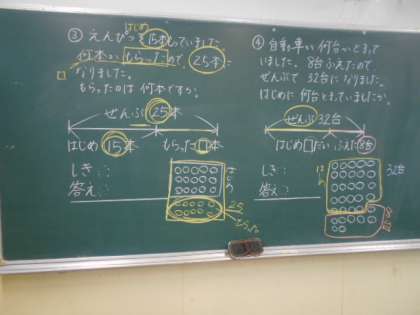 はじめ
③ えんぴつを15本もっていました
何本か もらったので、25本に
なりました。
もらったのは何本ですか。
ぜんぶ 25本
はじめ 15本 もらった□本
しき:
答え:
はじめ
25
もらった
④ 自動車が何台かとまって
いました。8台ふえたので、
ぜんぶで 32台になりました。
はじめに何台とまっていましたか。
ぜんぶ 32台
はじめ□だい ふえた8台
しき:
答え:
はじめ
32台